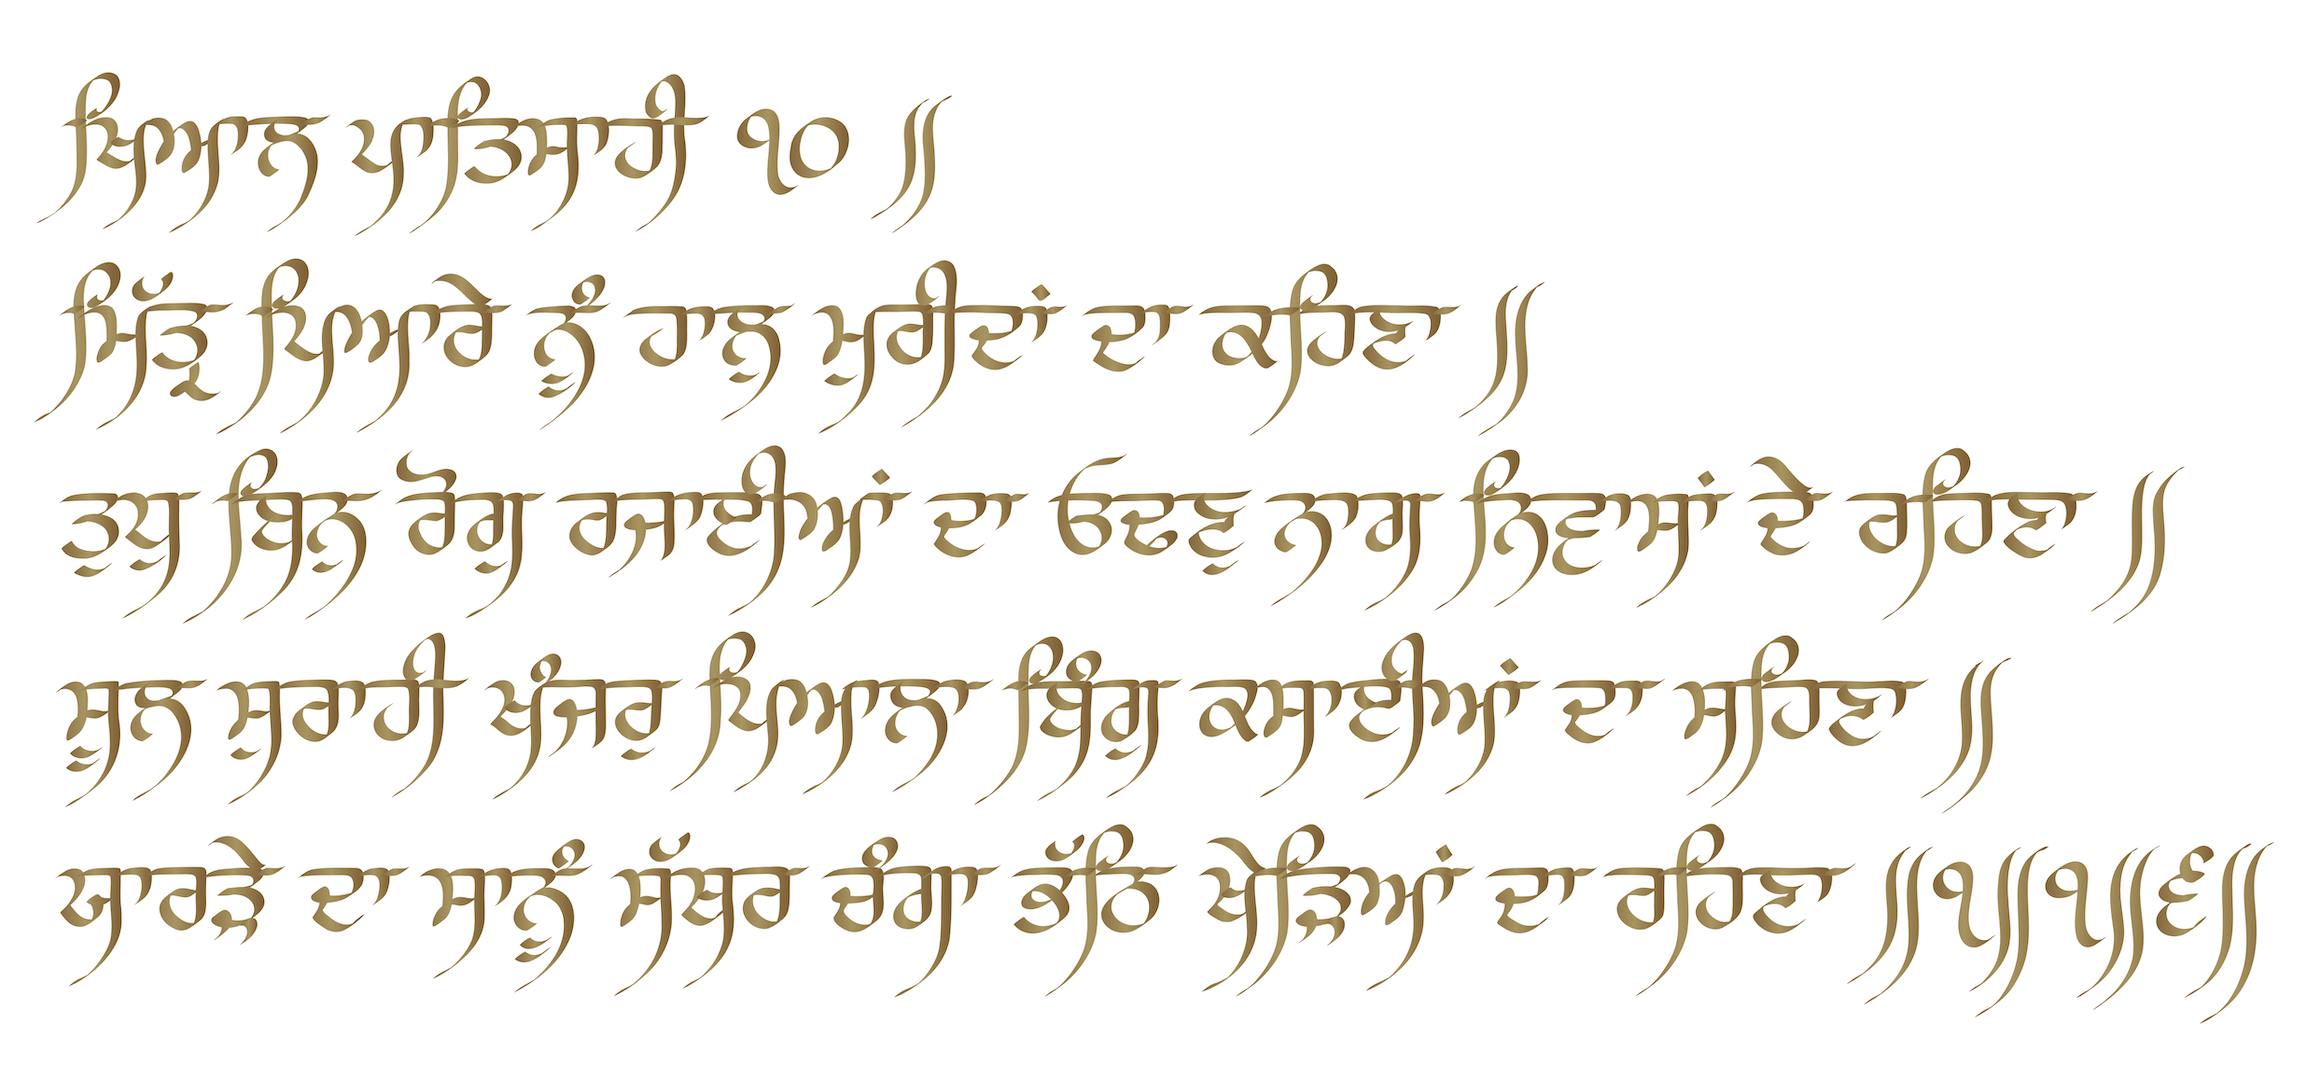 ਖਿਆਲ ਪਾਤਿਸਾਹੀ ੧੦ ॥
ਮਿੱਤ੍ਰ ਪਿਆਰੇ ਨੂੰ ਹਾਲੁ ਮੁਰੀਦਾਂ ਦਾ ਕਹਿਣਾ ॥
ਤੁਧੁ ਬਿਨੁ ਰੋਗੁ ਰਜਾਈਆਂ ਦਾ ਓਢਣੁ ਨਾਗ ਨਿਵਾਸਾਂ ਦੇ ਰਹਿਣਾ ॥
ਸੂਲ ਸੁਰਾਹੀ ਖੰਜਰੁ ਪਿਆਲਾ ਬਿੰਗੁ ਕਸਾਈਆਂ ਦਾ ਸਹਿਣਾ ॥
ਯਾਰੜੇ ਦਾ ਸਾਨੂੰ ਸੱਥਰ ਚੰਗਾ ਭੱਠਿ ਖੇੜਿਆਂ ਦਾ ਰਹਿਣਾ ॥੧॥੧॥੬॥